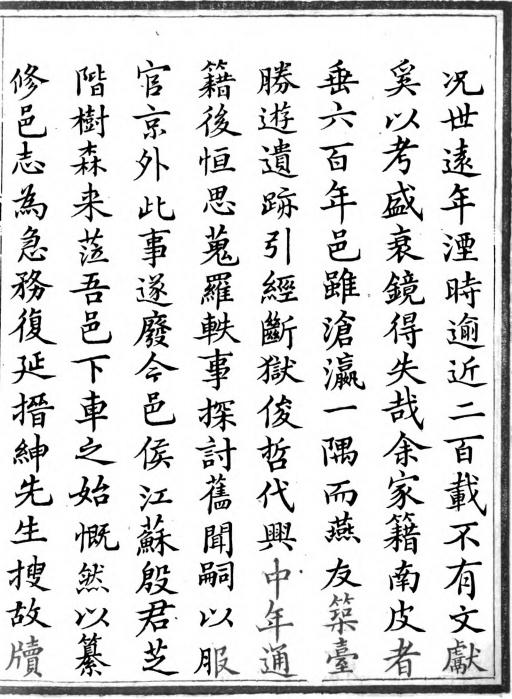 况世遠年湮時逾近二百載不有文獻
奚以考盛衰鏡得失哉余家籍南皮者
垂六百年邑雖滄瀛一隅而燕友築臺
勝遊遺跡引經斷獄俊哲代興中年通
籍後恒思蒐羅軼事探討舊聞嗣以服
官京外此事遂廢今邑侯江蘇殷君芝
階樹森来蒞吾邑下車之始慨然以纂
修邑志為急務復延搢紳先生搜故牘